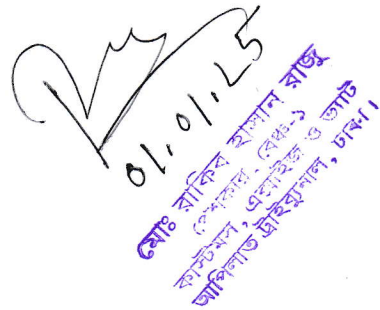 01.01.25
মোঃ রাকিব হাসান রাজু
পেশকার, বেঞ্চ-১
কাস্টমস, এক্সাইজ ও ভ্যাট
আপিলাত ট্রাইব্যুনাল, ঢাকা।